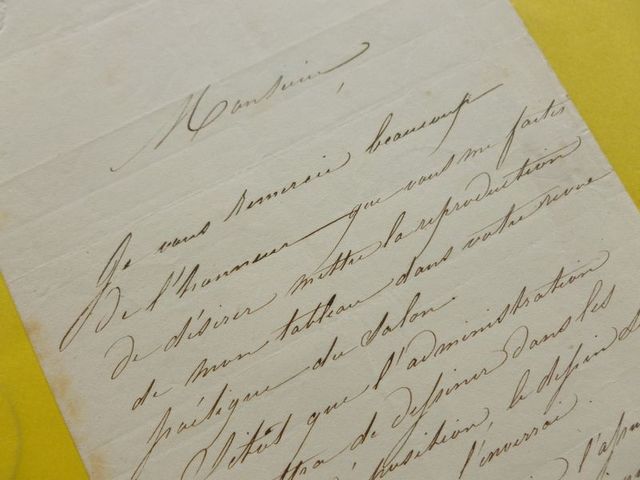 Monsieur,
Je vous remercie beaucoup
de l'honneur que vous me faites
de désirer mettre la reproduction
de mon tableau dans votre revue
poétique du Salon.
Sitôt que l'administration
de dessiner dans les
le dessin
l'enverrai.